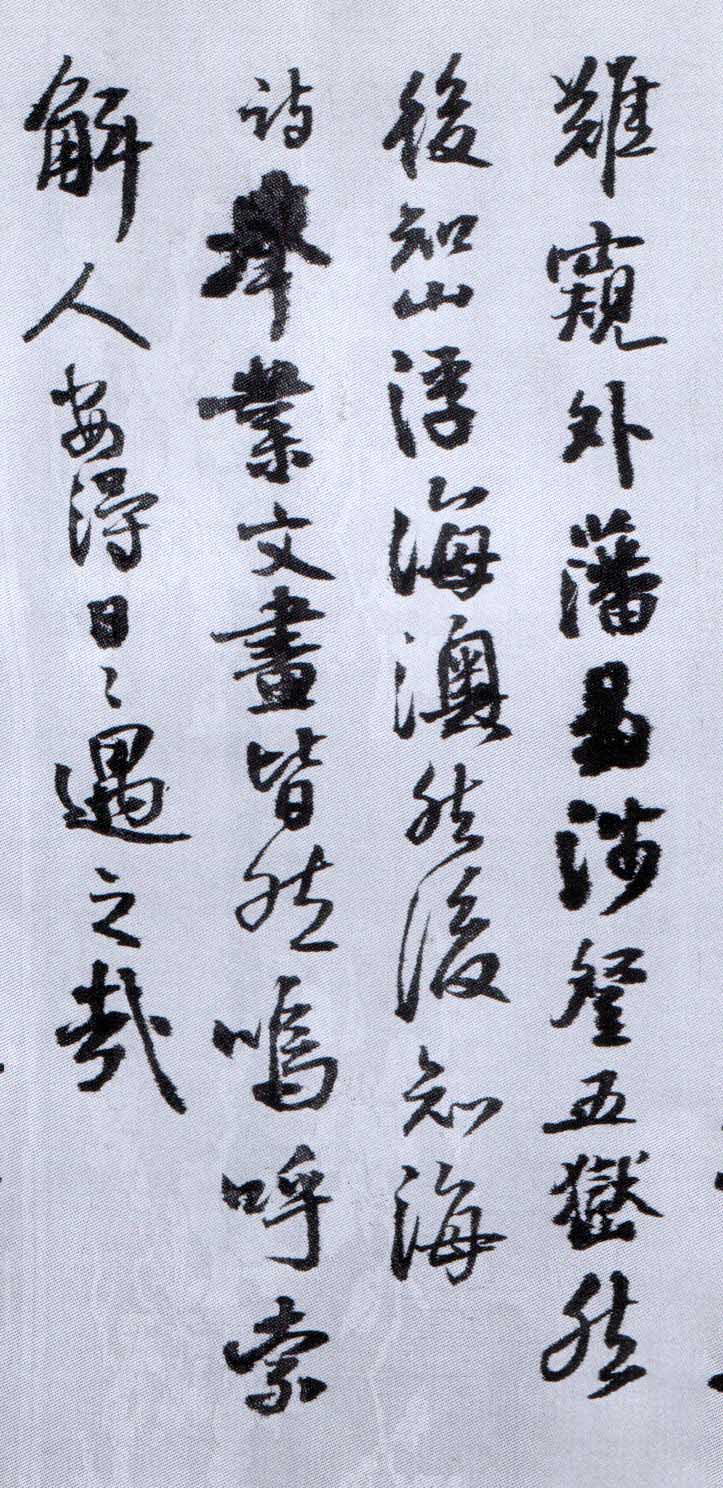 難窺外藩易涉登五嶽然
後知山浮海澳然後知海
詩舉業文畫皆然嗚呼索
解人安得日〻遇之哉